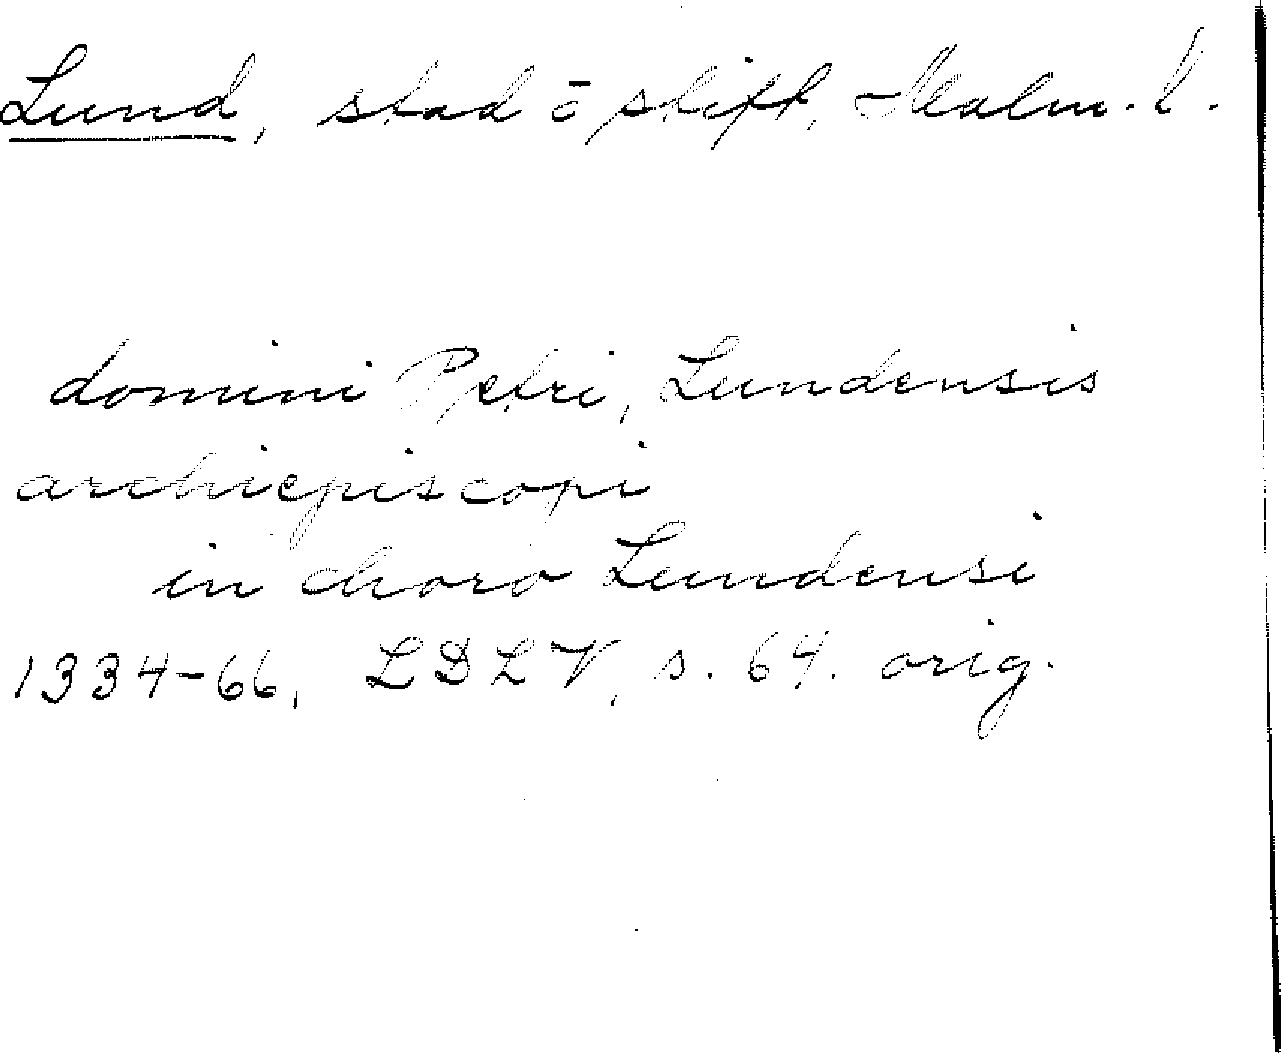 Lund, stad ō stift, Malm. l.
domini Petri, Lundensis
archiepiscopi
in choro Lundensi
1334-66, LDLV, s. 64. orig.